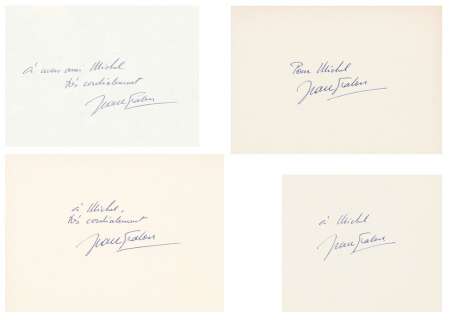 à mon ami Michel
très cordialement
Jean Gralon
Pour Michel
Jean Gralon
à Michel,
très cordialement
Jean Gralon
à Michel
Jean Gralon